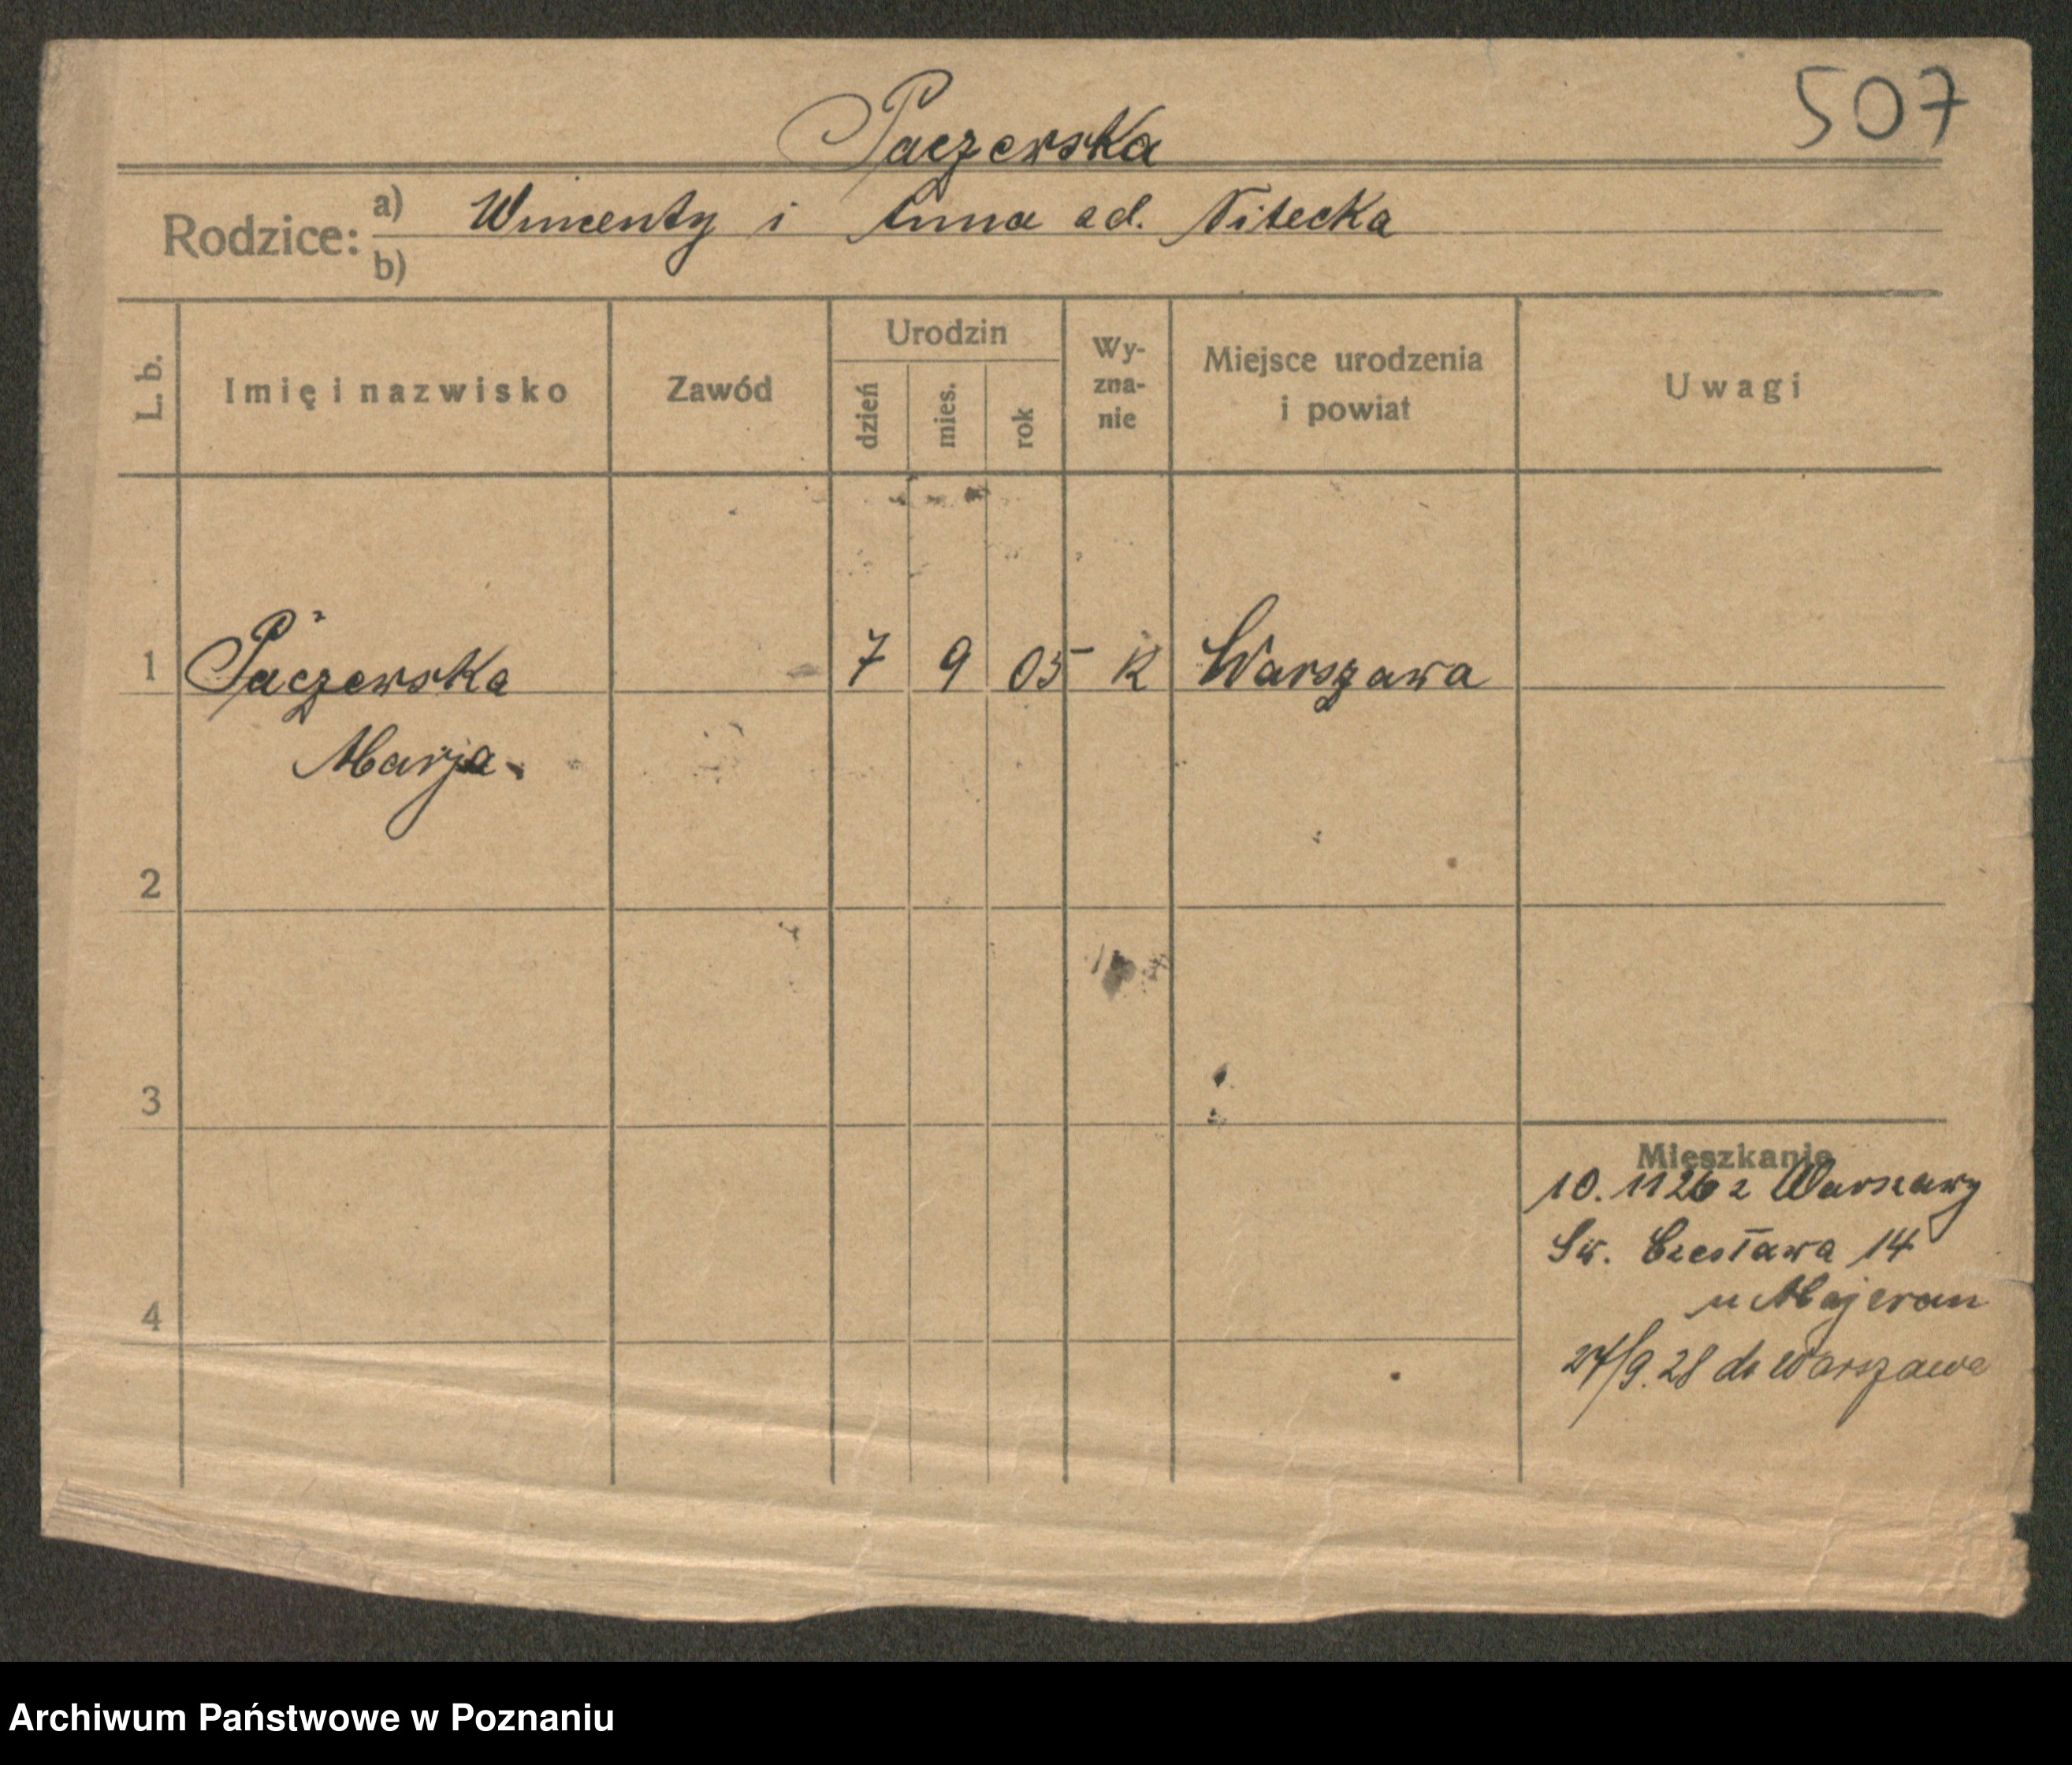 507
Paczewska
Rodzice: a) Wincenty i Anna ad. Nitecka
b)
L. b.
Imię i nazwisko
Zawód
Urodzin
dzień
mies.
rok
Wy-
zna-
nie
Miejsce urodzenia
i powiat
Uwagi
1 Paczewska 7 9 05 K Warszawa
Marja
2
3
4
Mieszkanie
10. 11 26 z Warszawy
Św. Czesława 14
u Majeran
27/9. 28 do Warszawa
Archiwum Państwowe w Poznaniu